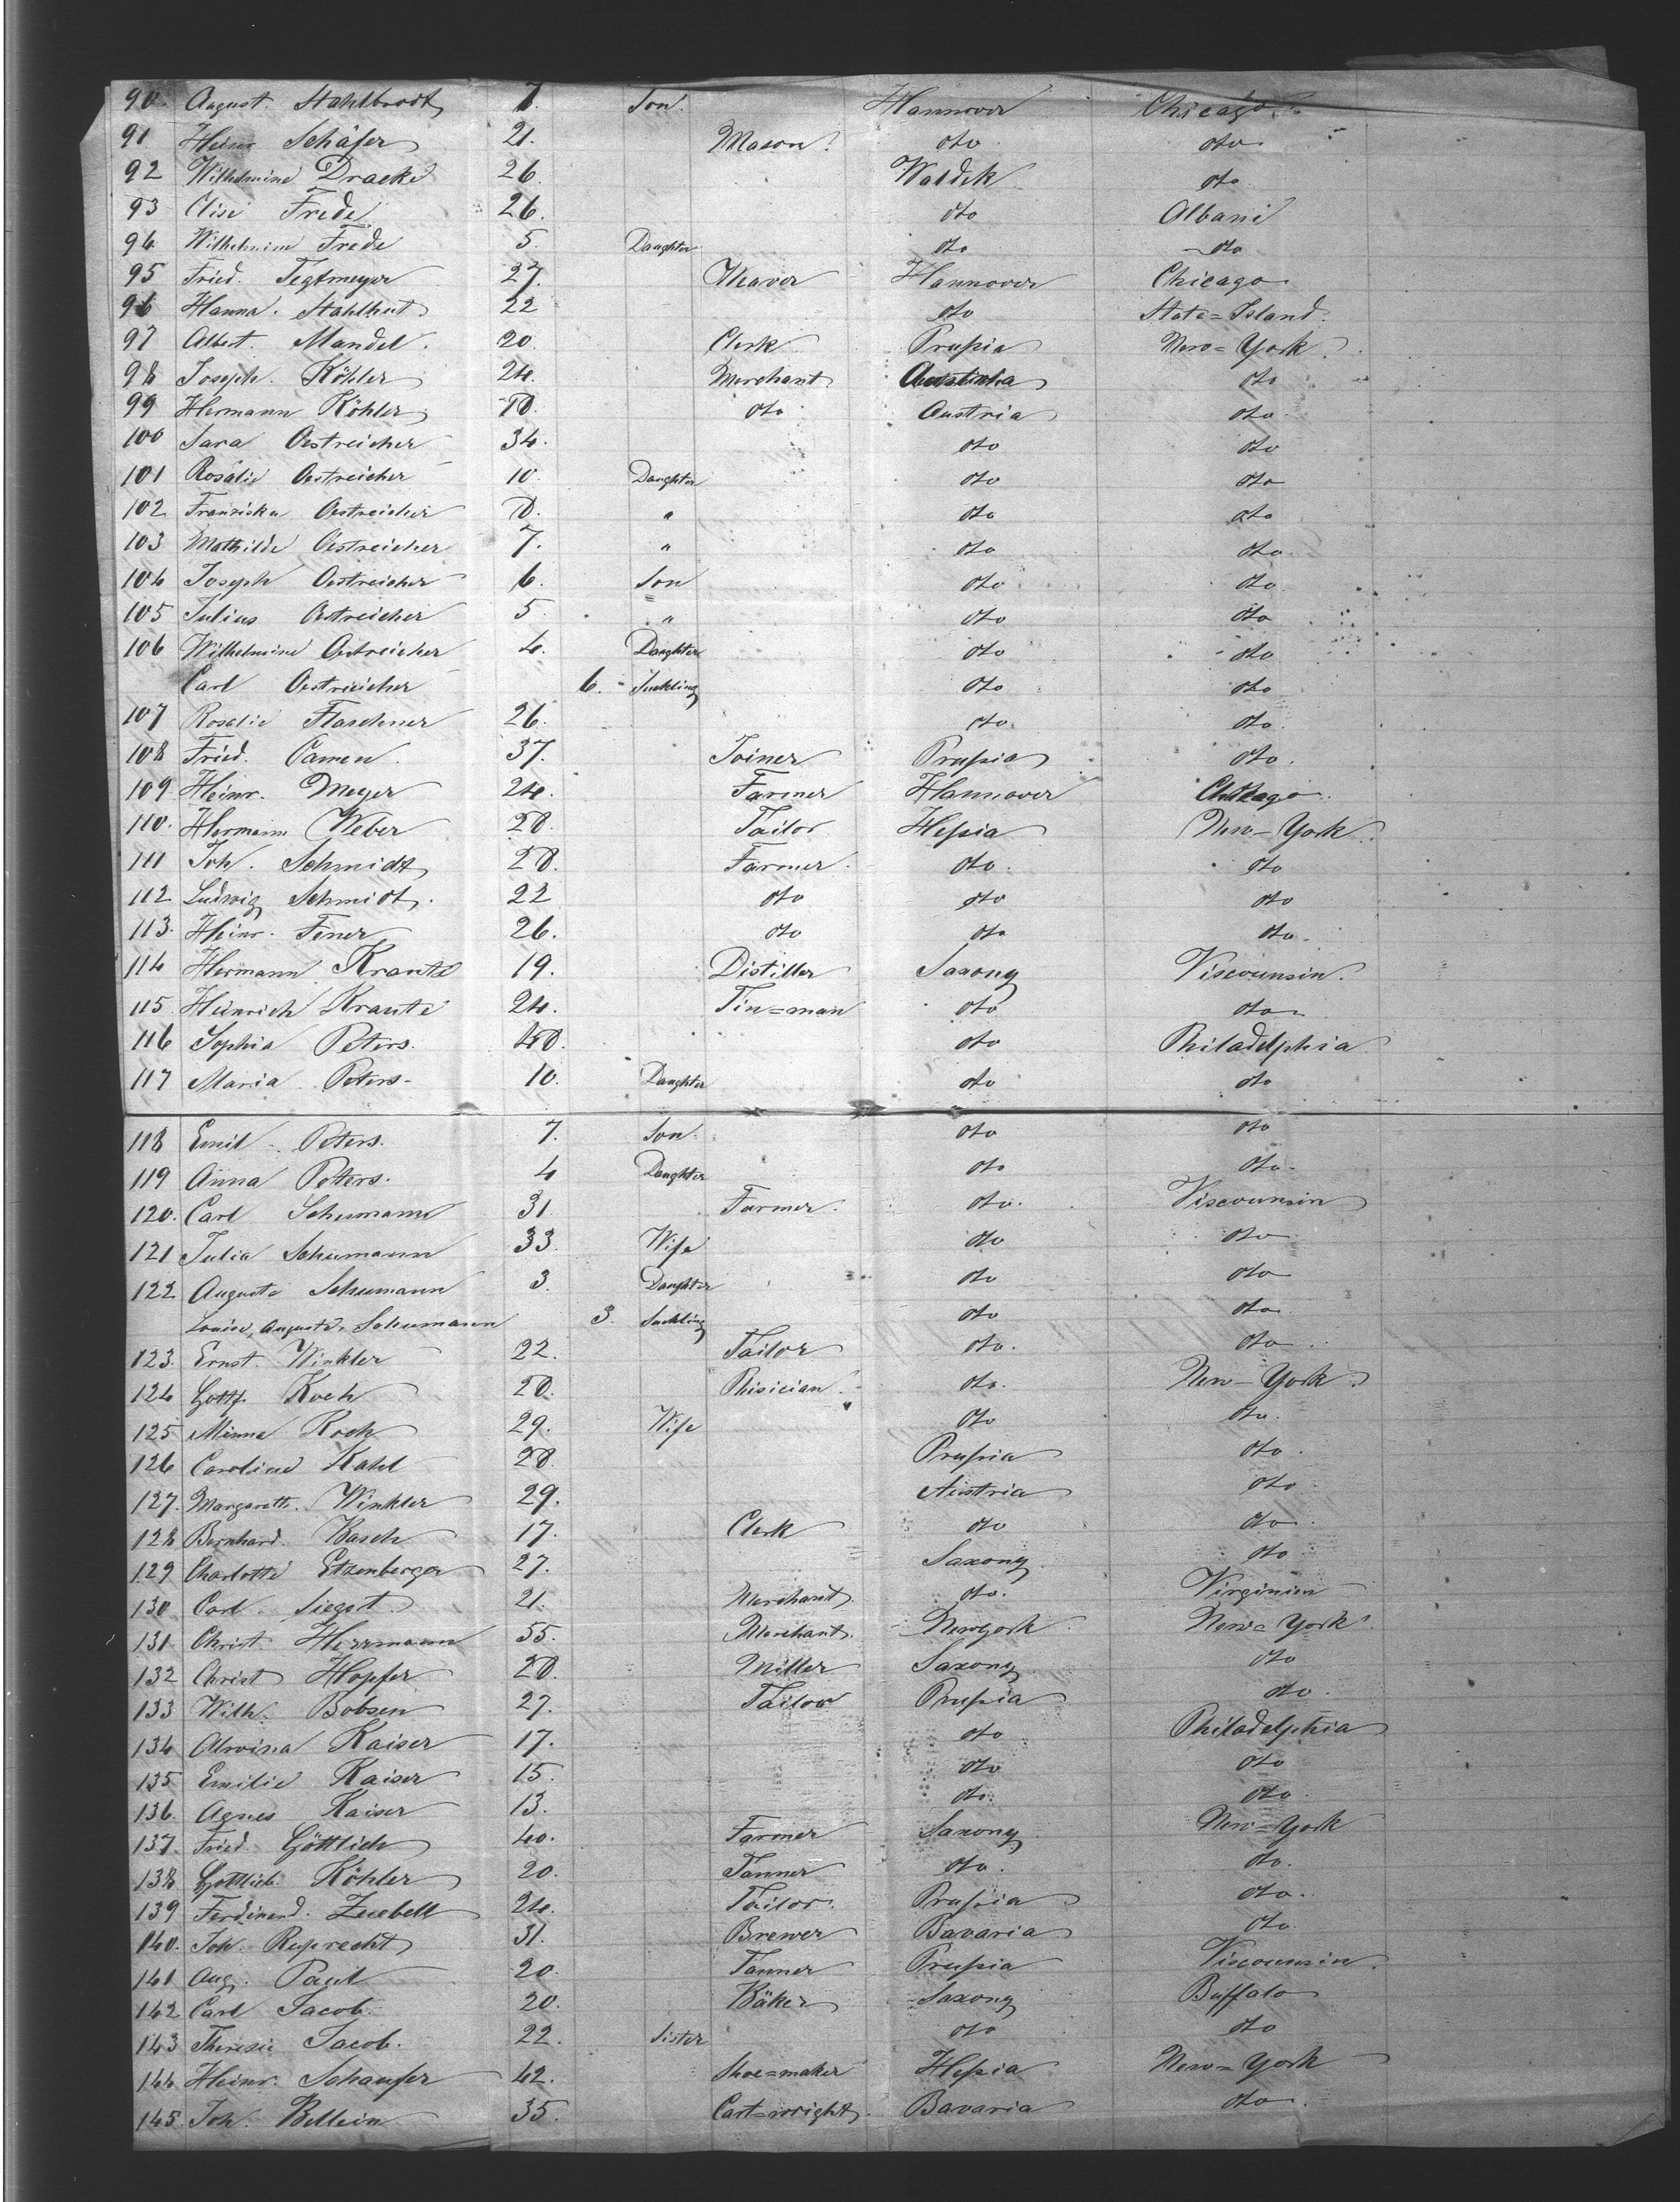 90. August. Stahlbrodt 7. Son. Hannover Chicago.
91 Heinr Schäfer 21. Mason. Hannover oto oto
92 Wilhelmine Dracke 26. Waldek oto
93 Elise Frede 26. oto Albani
94 Wilhelmine Frede 5. Daughter oto oto
95 Fried. Tegtmeyer 27. Weaver Hannover Chicago
96 Hanna. Stahlhut 22 oto State=Island.
97 Albert. Mandel. 20. Clerk Prussia New=York.
98 Joseph. Köhler 24. Merchant Austria oto
99 Hermann Köhler 18. oto Austria oto
100 Sara Oestreicher 34. oto oto
101 Rosalie Oestreicher 10. Daughter oto oto
102 Franziska Oestreicher 8. " oto oto
103 Mathilde Oestreicher 7. " oto oto
104 Joseph Oestreicher 6. Son oto oto
105 Julius Oestreicher 5. " oto oto
106 Wilhelmine Oestreicher 4. Daughter oto oto
Carl Oestreicher 6. Suckling oto oto
107 Rosalie Flaschner 26. oto oto
108 Fried. Camen. 37. Joiner Prussia oto
109 Heinr. Meyer 24. Farmer Hannover Chicago
110. Hermann Weber 28. Tailor Hessia New=York.
111 Joh. Schmidt 28. Farmer oto oto
112 Ludwig Schmidt. 22 oto oto oto
113. Heinr. Fener 26. oto oto oto
114 Hermann Krante 19. Distiller Saxony Viscounsin.
115 Heinrich Krante 24. Tin=man oto oto
116 Sophia Peters. 48. oto Philadelphia
117 Maria Peters. 10. Daughter oto oto
118 Emil. Peters. 7. Son. oto oto
119 Anna Peters. 4 Daughter oto oto
120. Carl Schumann 31. Farmer. oto. Viscounsin
121 Julia Schumann 33. Wife oto oto
122 Auguste Schumann 3. Daughter oto oto
Louise, Auguste, Schumann 3. Suckling oto oto
123. Ernst. Winkler 22. Tailor oto. oto
124 Gottf. Koch 28. Phisician. oto. New=York.
125 Minna Koch 29. Wife oto oto
126 Caroline Kahl 28. Prussia oto
127. Margareth. Winkler 29. Austria oto
128 Bernhard. Kasch 17. Clerk oto oto
129 Charlotte Etzenberger 27. Saxony oto
130 Carl. Siegst. 21. Merchant oto. Virginien
131. Christ. Herrmann 55. Merchant. Newyork New=York
132 Christ Hopfer 28. Miller Saxony oto
133 Wilh. Bobsen 27. Tailor Prussia oto
134 Alwina Kaiser 17. oto Philadelphia
135 Emilie Kaiser 15. oto oto
136. Agnes Kaiser 13. oto. oto
137. Fried. Göttlich 40. Farmer Saxony New=York
138. Gottlieb. Köhler 20. Tanner oto. oto.
139 Ferdinand. Zuebell 24. Tailor. Prussia oto.
140. Joh. Ruprecht 31. Brewer Bavaria oto
141 Aug. Paul 20. Tanner Prussia Viscounsin.
142 Carl Jacob. 20. Bäker Saxony Buffalo
143 Theresie Jacob. 22. Sister oto oto
144 Heinr. Schaufer 42. Shoe=maker Hessia New=York
145. Joh. Bellein 35. Cart=wright. Bavaria oto.